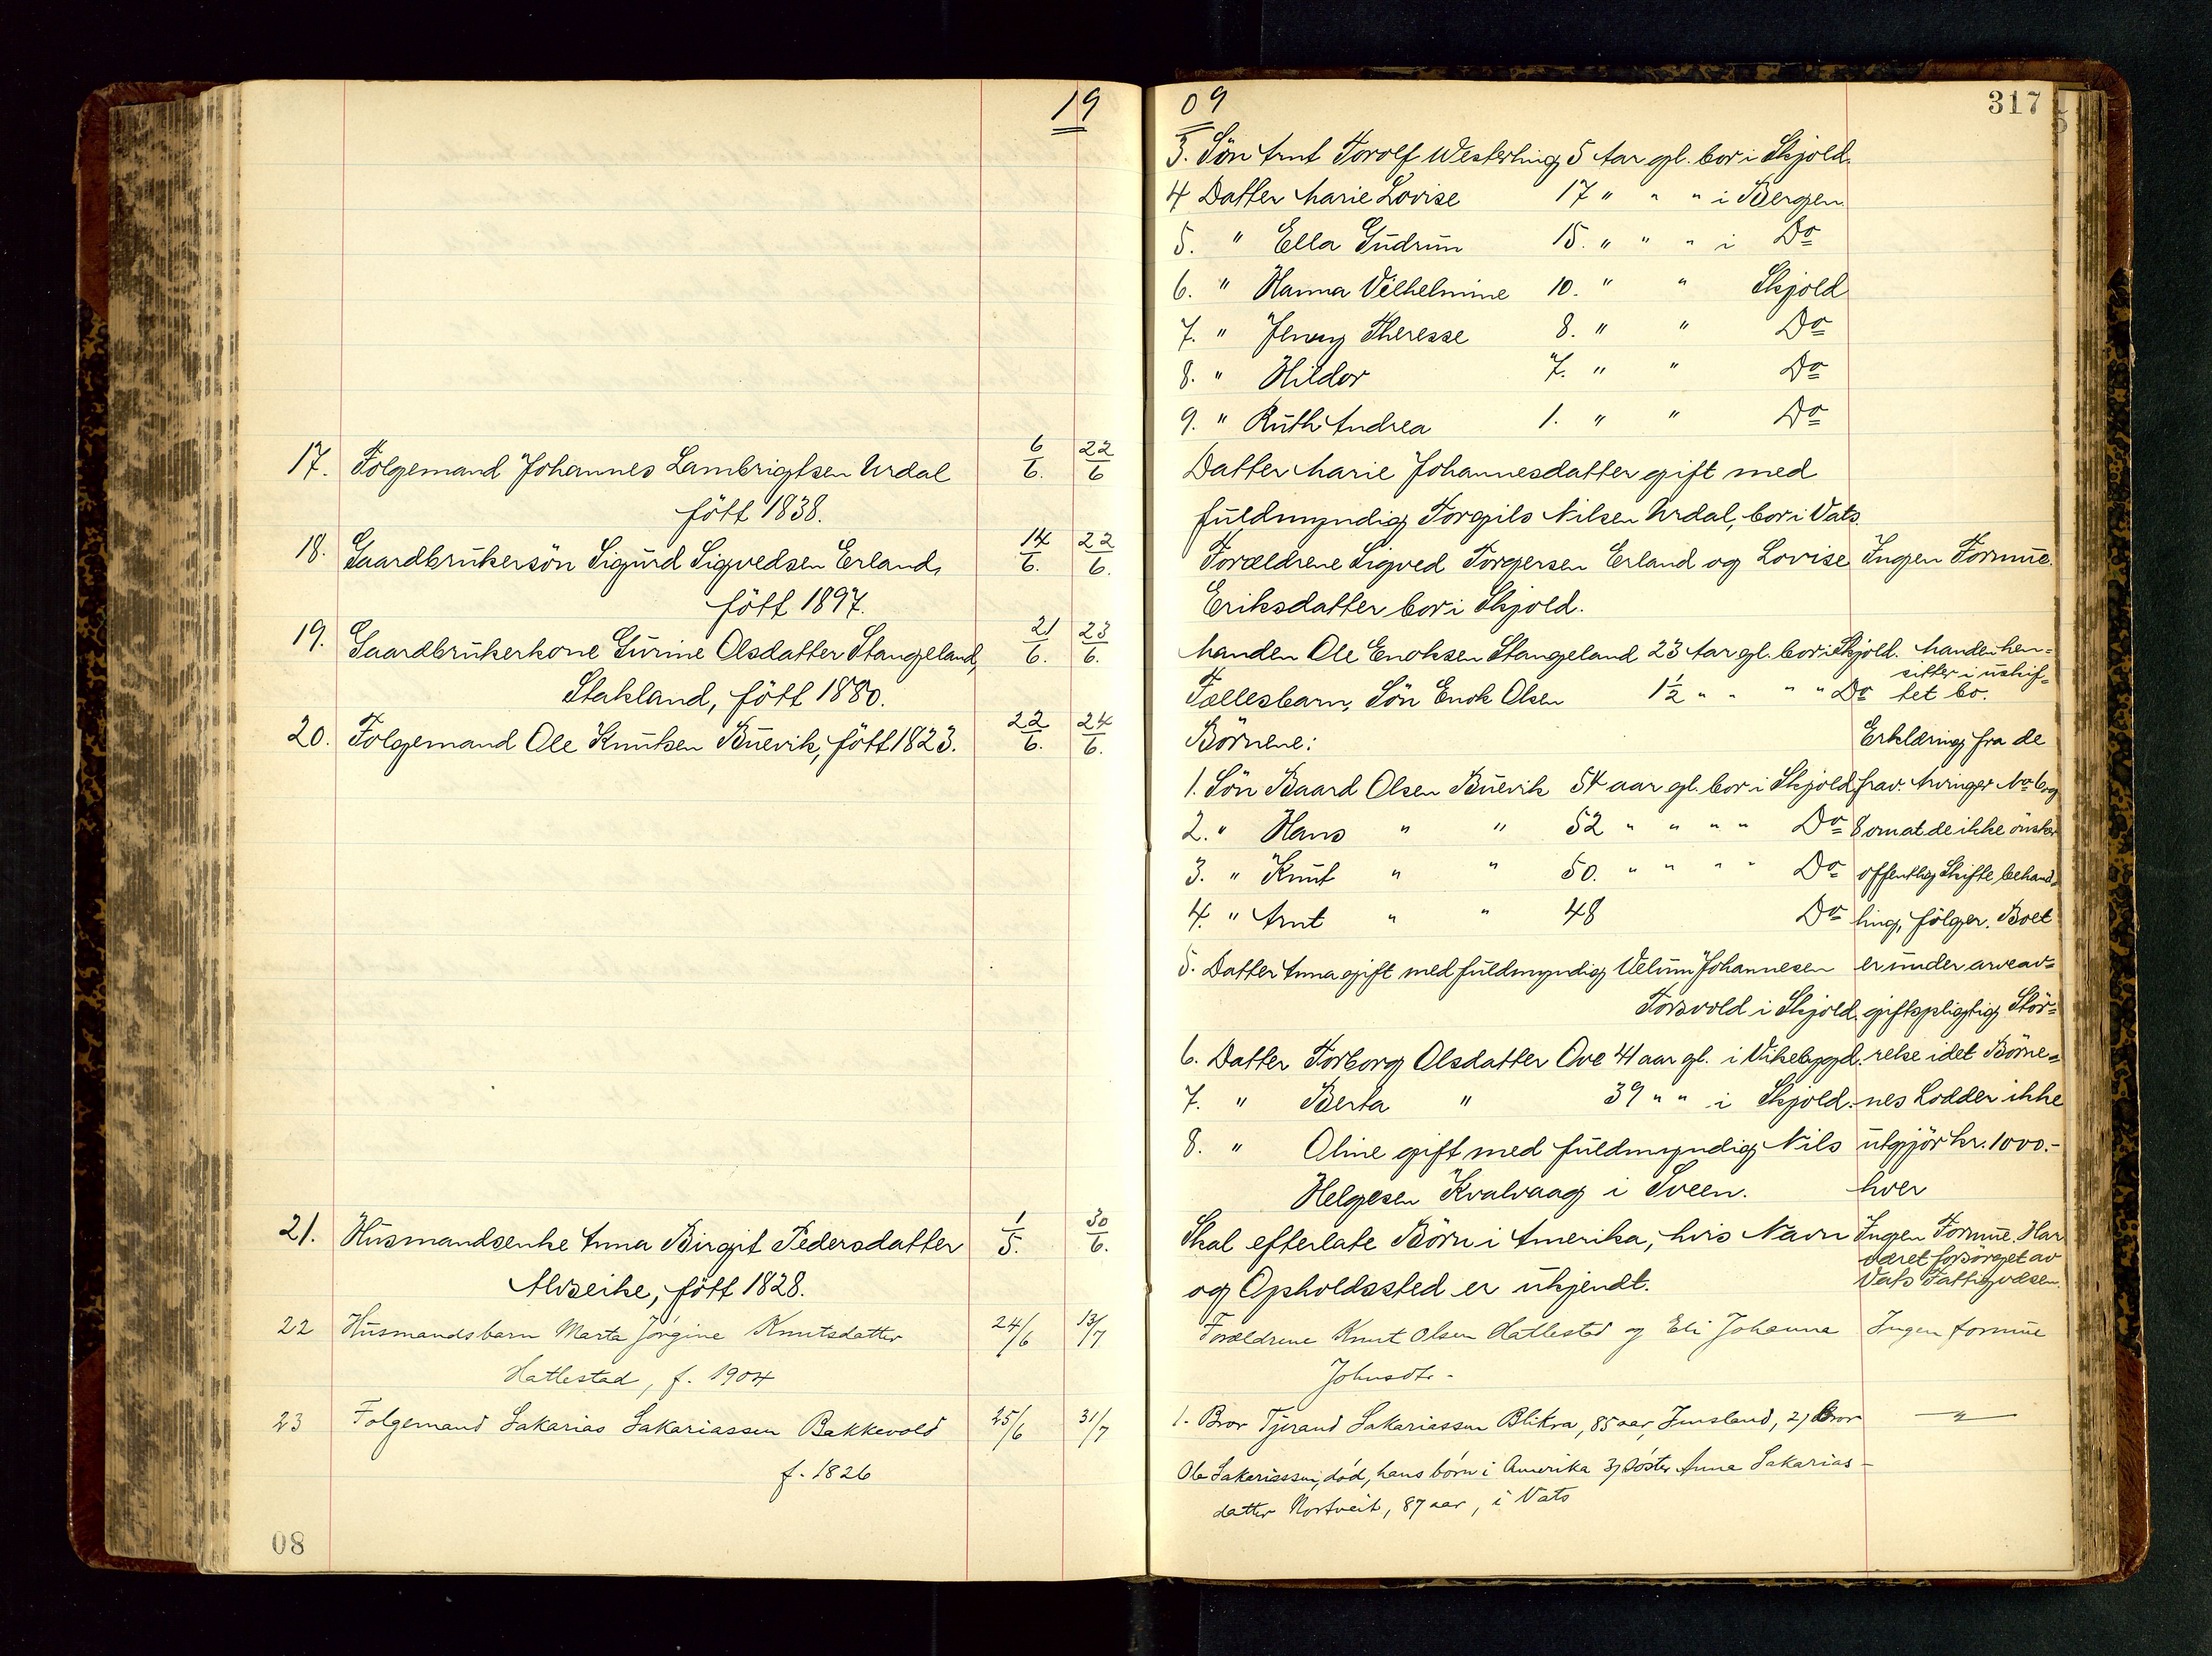 19
17. Følgemand Johannes Lambrigtsen Urdal 6/6. 22/6
fött 1838.
18. Gaardbrukersön Sigurd Sigvedsen Erland, 14/6. 22/6.
fött 1897.
19. Gaardbrukerkone Gurine Olsdatter Stangeland, 21/6. 23/6.
Stakland, fött 1880.
20. Folgemand Ole Knutsen Buevik, fött 1823. 22/6. 24/6.
21. Husmandsenke Anna Birgit Pedersdatter 1/5. 30/6.
Alvseike, fött 1828.
22 Husmandsbarn Marta Jörgine Knutsdatter 24/6 13/7
Hatlestad, f. 1904
23 Folgemand Sakarias Sakariassen Bakkevold 25/6 31/7
f. 1826
08
09
317
3. Sön Arnt Torolf Westerling 5 Aar gl. bor i Skjold.
4 Datter Marie Lovise 17 " " " i Bergen
5. " Ella Gudrun 15. " " " i Do
6. " Hanna Vilhelmine 10. " " Skjold
7. " Jenny Theresse 8. " " Do
8. " Hildor 7. " " Do
9. " Ruth Andrea 1. " " Do
Datter Marie Johannesdatter gift med
fuldmyndig Torgils Nilsen Urdal, bor i Vats.
Forældrene Sigved Torgersen Erland og Lovise Ingen Formue.
Eriksdatter bor i Skjold.
Manden Ole Enoksen Stangeland 23 Aar gl. bor i Skjold. Manden hen-
sitter i uskif-
Fællesbarn, Sön Enok Olsen 1½ " " " " Do tet bo.
Börnene: Erklæring fra de
1. Sön Baard Olsen Buevik 54 aar gl. bor i Skjold frav. Arvinger No 6 og
2. " Hans " " 52 " " " " Do 8 om at de ikke önsker
3. " Knut " " 50. " " " " Do offentlig Skifte behand-
4. " Arnt " " 48 Do ling, fölger. Boet
5. Datter Anna gift med fuldmyndig Velum Johannesen er under arveav-
Torsvold i Skjold. giftspligtig Stör-
6. Datter Torborg Olsdatter Ove 41 aar gl. i Vikebygd. relse idet Börne-
7. " Berta " 39 " " i Skjold. nes Lodder ikke
8. " Oline gift med fuldmyndig Nils utgjör kr. 1000.-
Helgesen Kvalvaag i Sveen. hver
Skal efterlate Börn i Amerika, hvis Navn Ingen Formue. Har
været forsörget av
og Opholdssted er ukjendt. Vats Fattigvæsen.
Forældrene Knut Olsen Hatlestad og Eli Johanna Ingen formue
Johnsdtr.
1. Bror Tjerand Sakariassen Blikra, 85 aar, Imsland, 2) Bror — " —
Ole Sakariassen, död, hans börn i Amerika 3) Söster Anna Sakarias-
datter Nortveit, 87 aar, i Vats